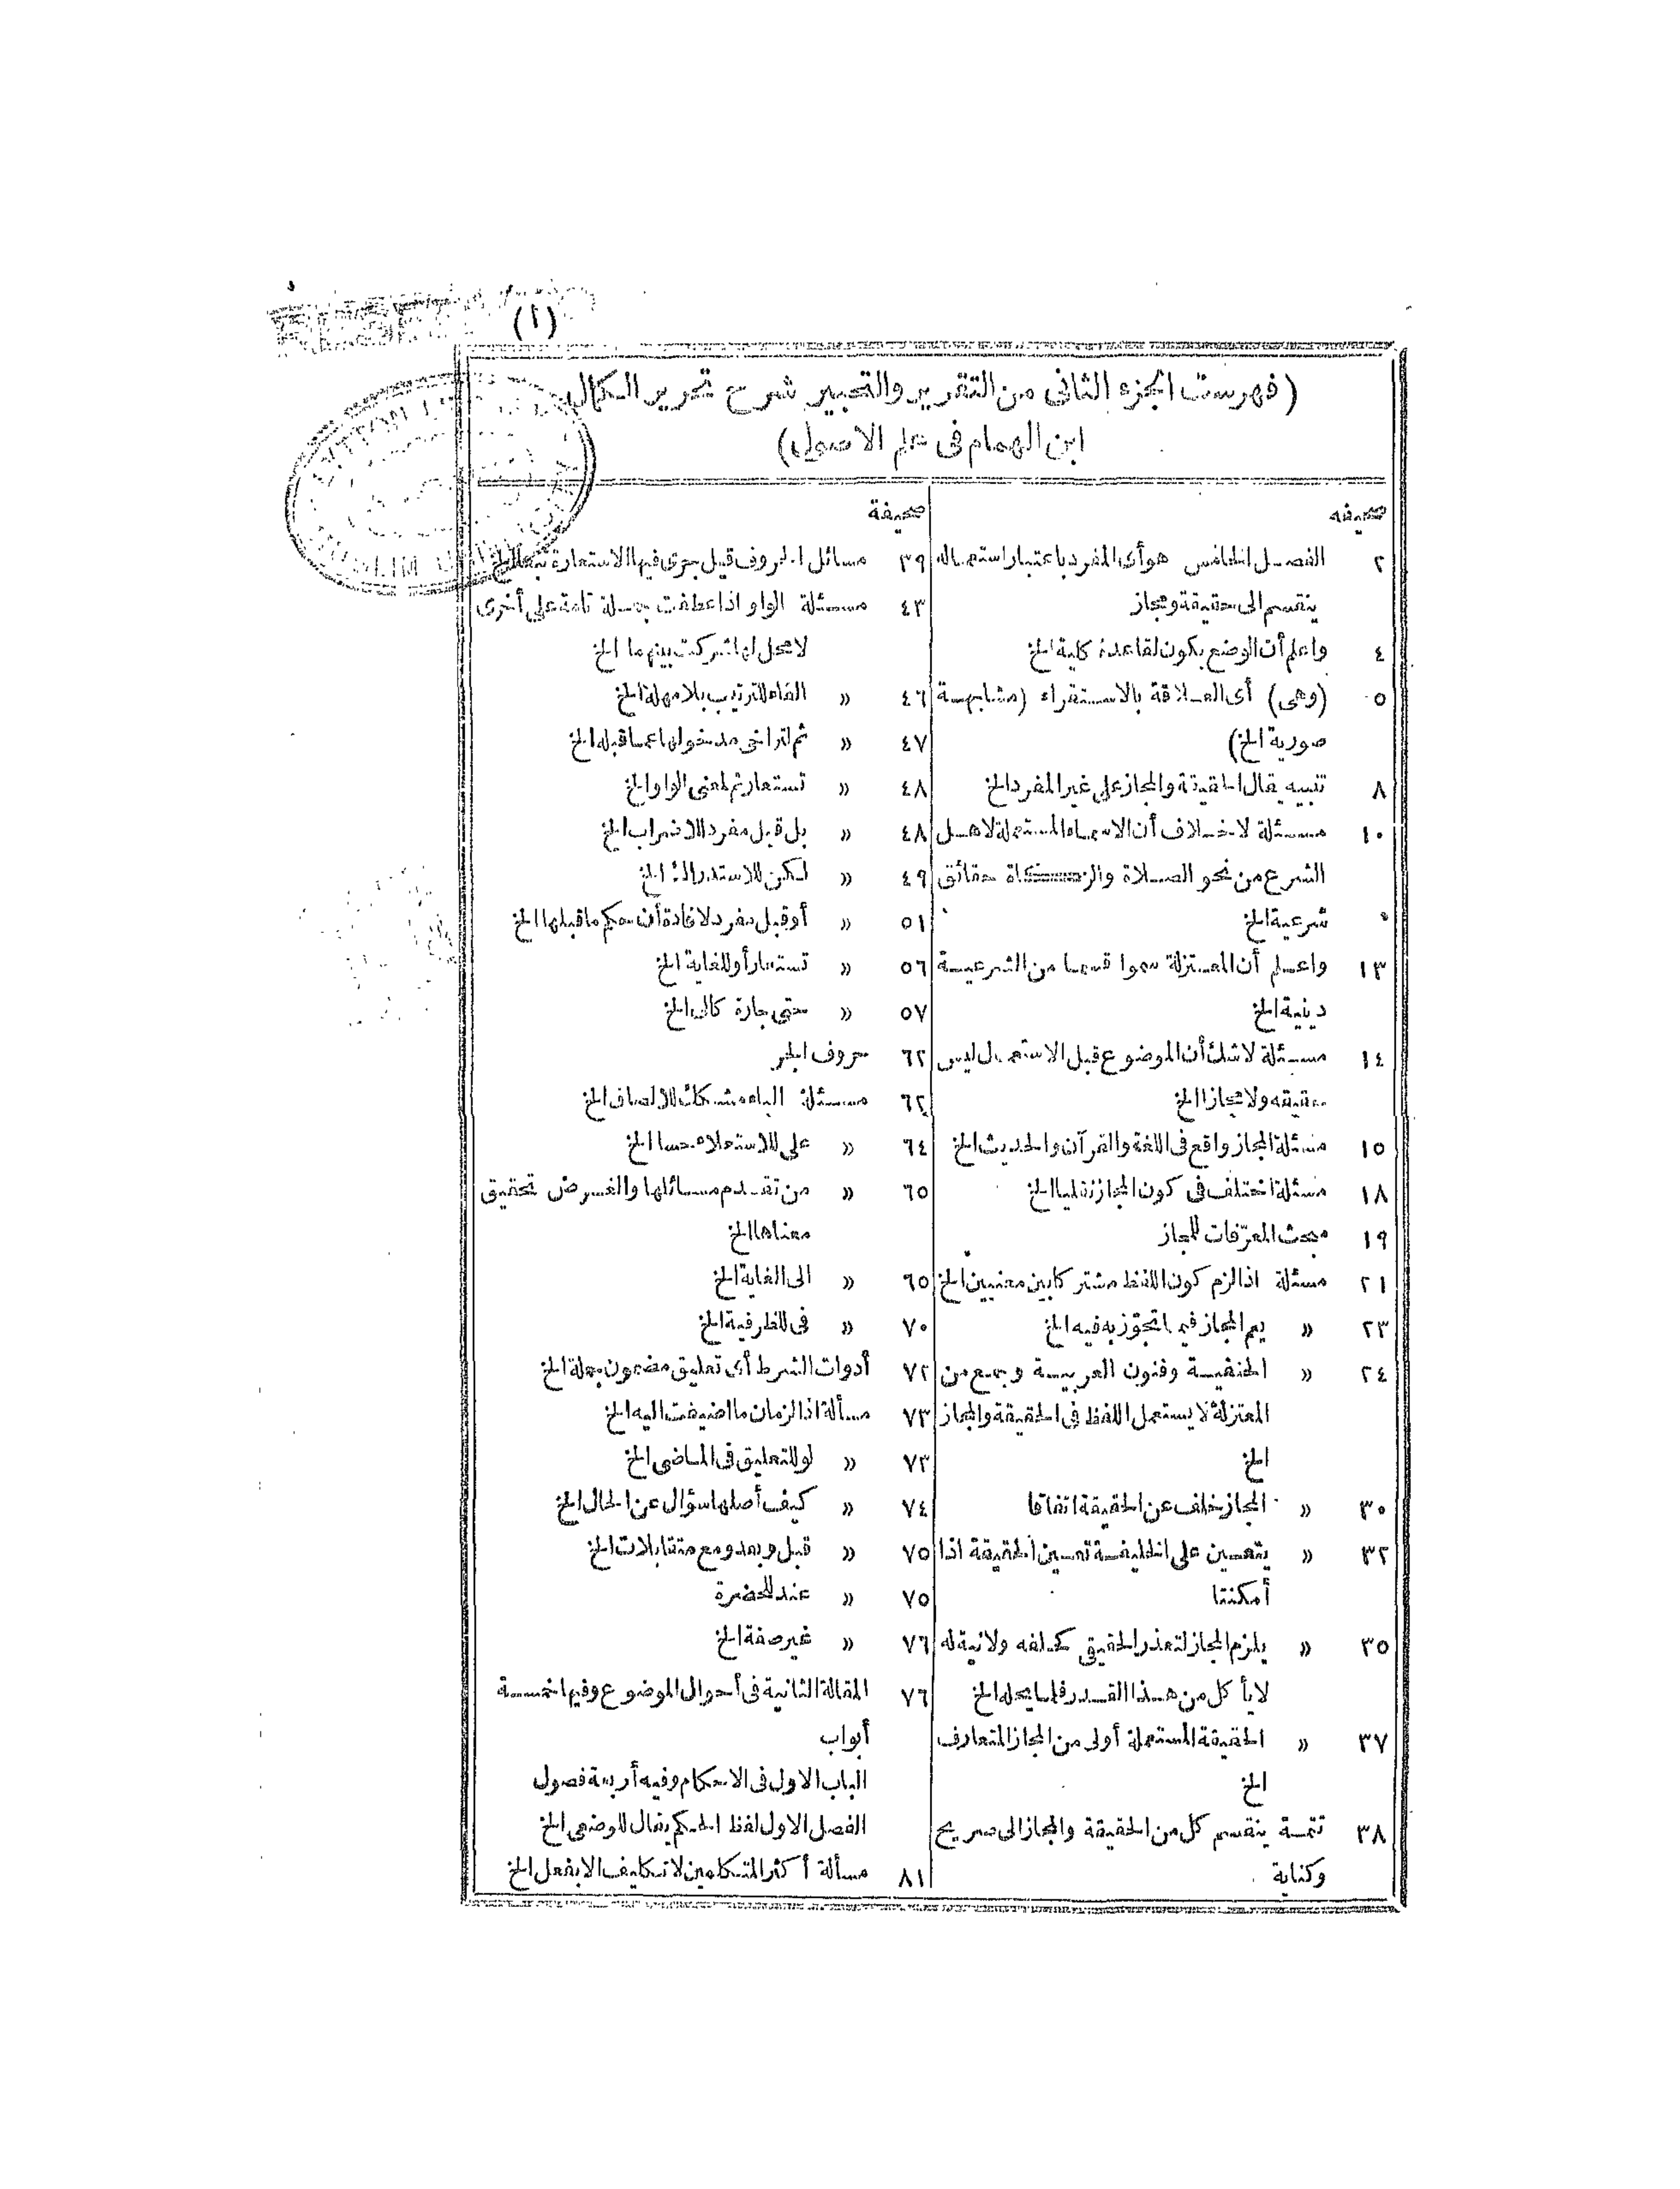 (أ)
(فهرست الجزء الثانى من التقرير والتحبير شرح تحرير الكمال
ابن الهمام فى علم الاصول)
صحيفه
٢ الفصل الخامس هو أى المفرد باعتبار استعماله
ينقسم الى حقيقة ومجاز
٤ واعلم أن الوضع يكون لقاعدة كلية الخ
٥ (وهى) أى العلاقة بالاستقراء (مشابهة
صورية الخ)
٨ تنبيه يقال الحقيقة والمجاز على غير المفرد الخ
١٠ مسئلة لا خلاف أن الاسماء المستعملة لاهل
الشرع من نحو الصلاة والزكاة حقائق
شرعية الخ
١٣ واعلم أن المعتزلة سموا قسما من الشرعية
دينية الخ
١٤ مسئلة لاشك أن الموضوع قبل الاستعمال ليس
حقيقه ولا مجازا الخ
١٥ مسئلة المجاز واقع فى اللغة والقرآن والحديث الخ
١٨ مسئلة اختلف فى كون المجاز نقليا الخ
١٩ مبحث المعرّفات للمجاز
٢١ مسئلة اذا لزم كون اللفظ مشتركا بين معنيين الخ
٢٣ » يعم المجاز فيما تجوّز به فيه الخ
٢٤ » الحنفية وفنون العربية وجمع من
المعتزلة لا يستعمل اللفظ فى الحقيقة والمجاز
الخ
٣٠ » المجاز خلف عن الحقيقة اتفاقا
٣٢ » يتعين على الخليفة تعيين الحقيقة اذا
أمكنتا
٣٥ » يلزم المجاز لتعذر الحقيقى كحلفه ولا نية له
لا يأكل من هذا القدر فلما يحله الخ
٣٧ » الحقيقة المستعملة أولى من المجاز المتعارف
الخ
٣٨ تتمة ينقسم كل من الحقيقة والمجاز الى صريح
وكناية
صحيفة
٣٩ مسائل الحروف قيل جرى فيها الاستعارة تبعا الخ
٤٣ مسئلة الواو اذا عطفت جملة تامة على أخرى
لا محل لها شركت بينهما الخ
٤٦ » الفاء للترتيب بلا مهلة الخ
٤٧ » ثم لتراخى مدخولها عما قبله الخ
٤٨ » تستعار ثم لمعنى الواو الخ
٤٨ » بل قبل مفرد للاضراب الخ
٤٩ » لكن للاستدراك الخ
٥١ » أو قبل مفرد لافادة أن حكم ما قبلها الخ
٥٦ » تستعار أو للغاية الخ
٥٧ » حتى جارة كالى الخ
٦٢ حروف الجر
٦٢ مسئلة الباء مشكك للالصاق الخ
٦٤ » على للاستعلاء حسا الخ
٦٥ » من تقدم مسائلها والغرض تحقيق
معناها الخ
٦٥ » الى الغاية الخ
٧٠ » فى للظرفية الخ
٧٢ أدوات الشرط أى تعليق مضمون جملة الخ
٧٣ مسألة اذا لزمان ما اضيفت اليه الخ
٧٣ » لو للتعليق فى الماضى الخ
٧٤ » كيف أصلها سؤال عن الحال الخ
٧٥ » قبل وبعد ومع متقابلات الخ
٧٥ » عند للحضرة
٧٦ » غير صفة الخ
٧٦ المقالة الثانية فى أحوال الموضوع وفيها خمسة
أبواب
الباب الاول فى الاحكام وفيه أربعة فصول
الفصل الاول لفظ الحكم يقال للوضعى الخ
٨١ مسألة أكثر المتكلمين لا تكليف الا بفعل الخ